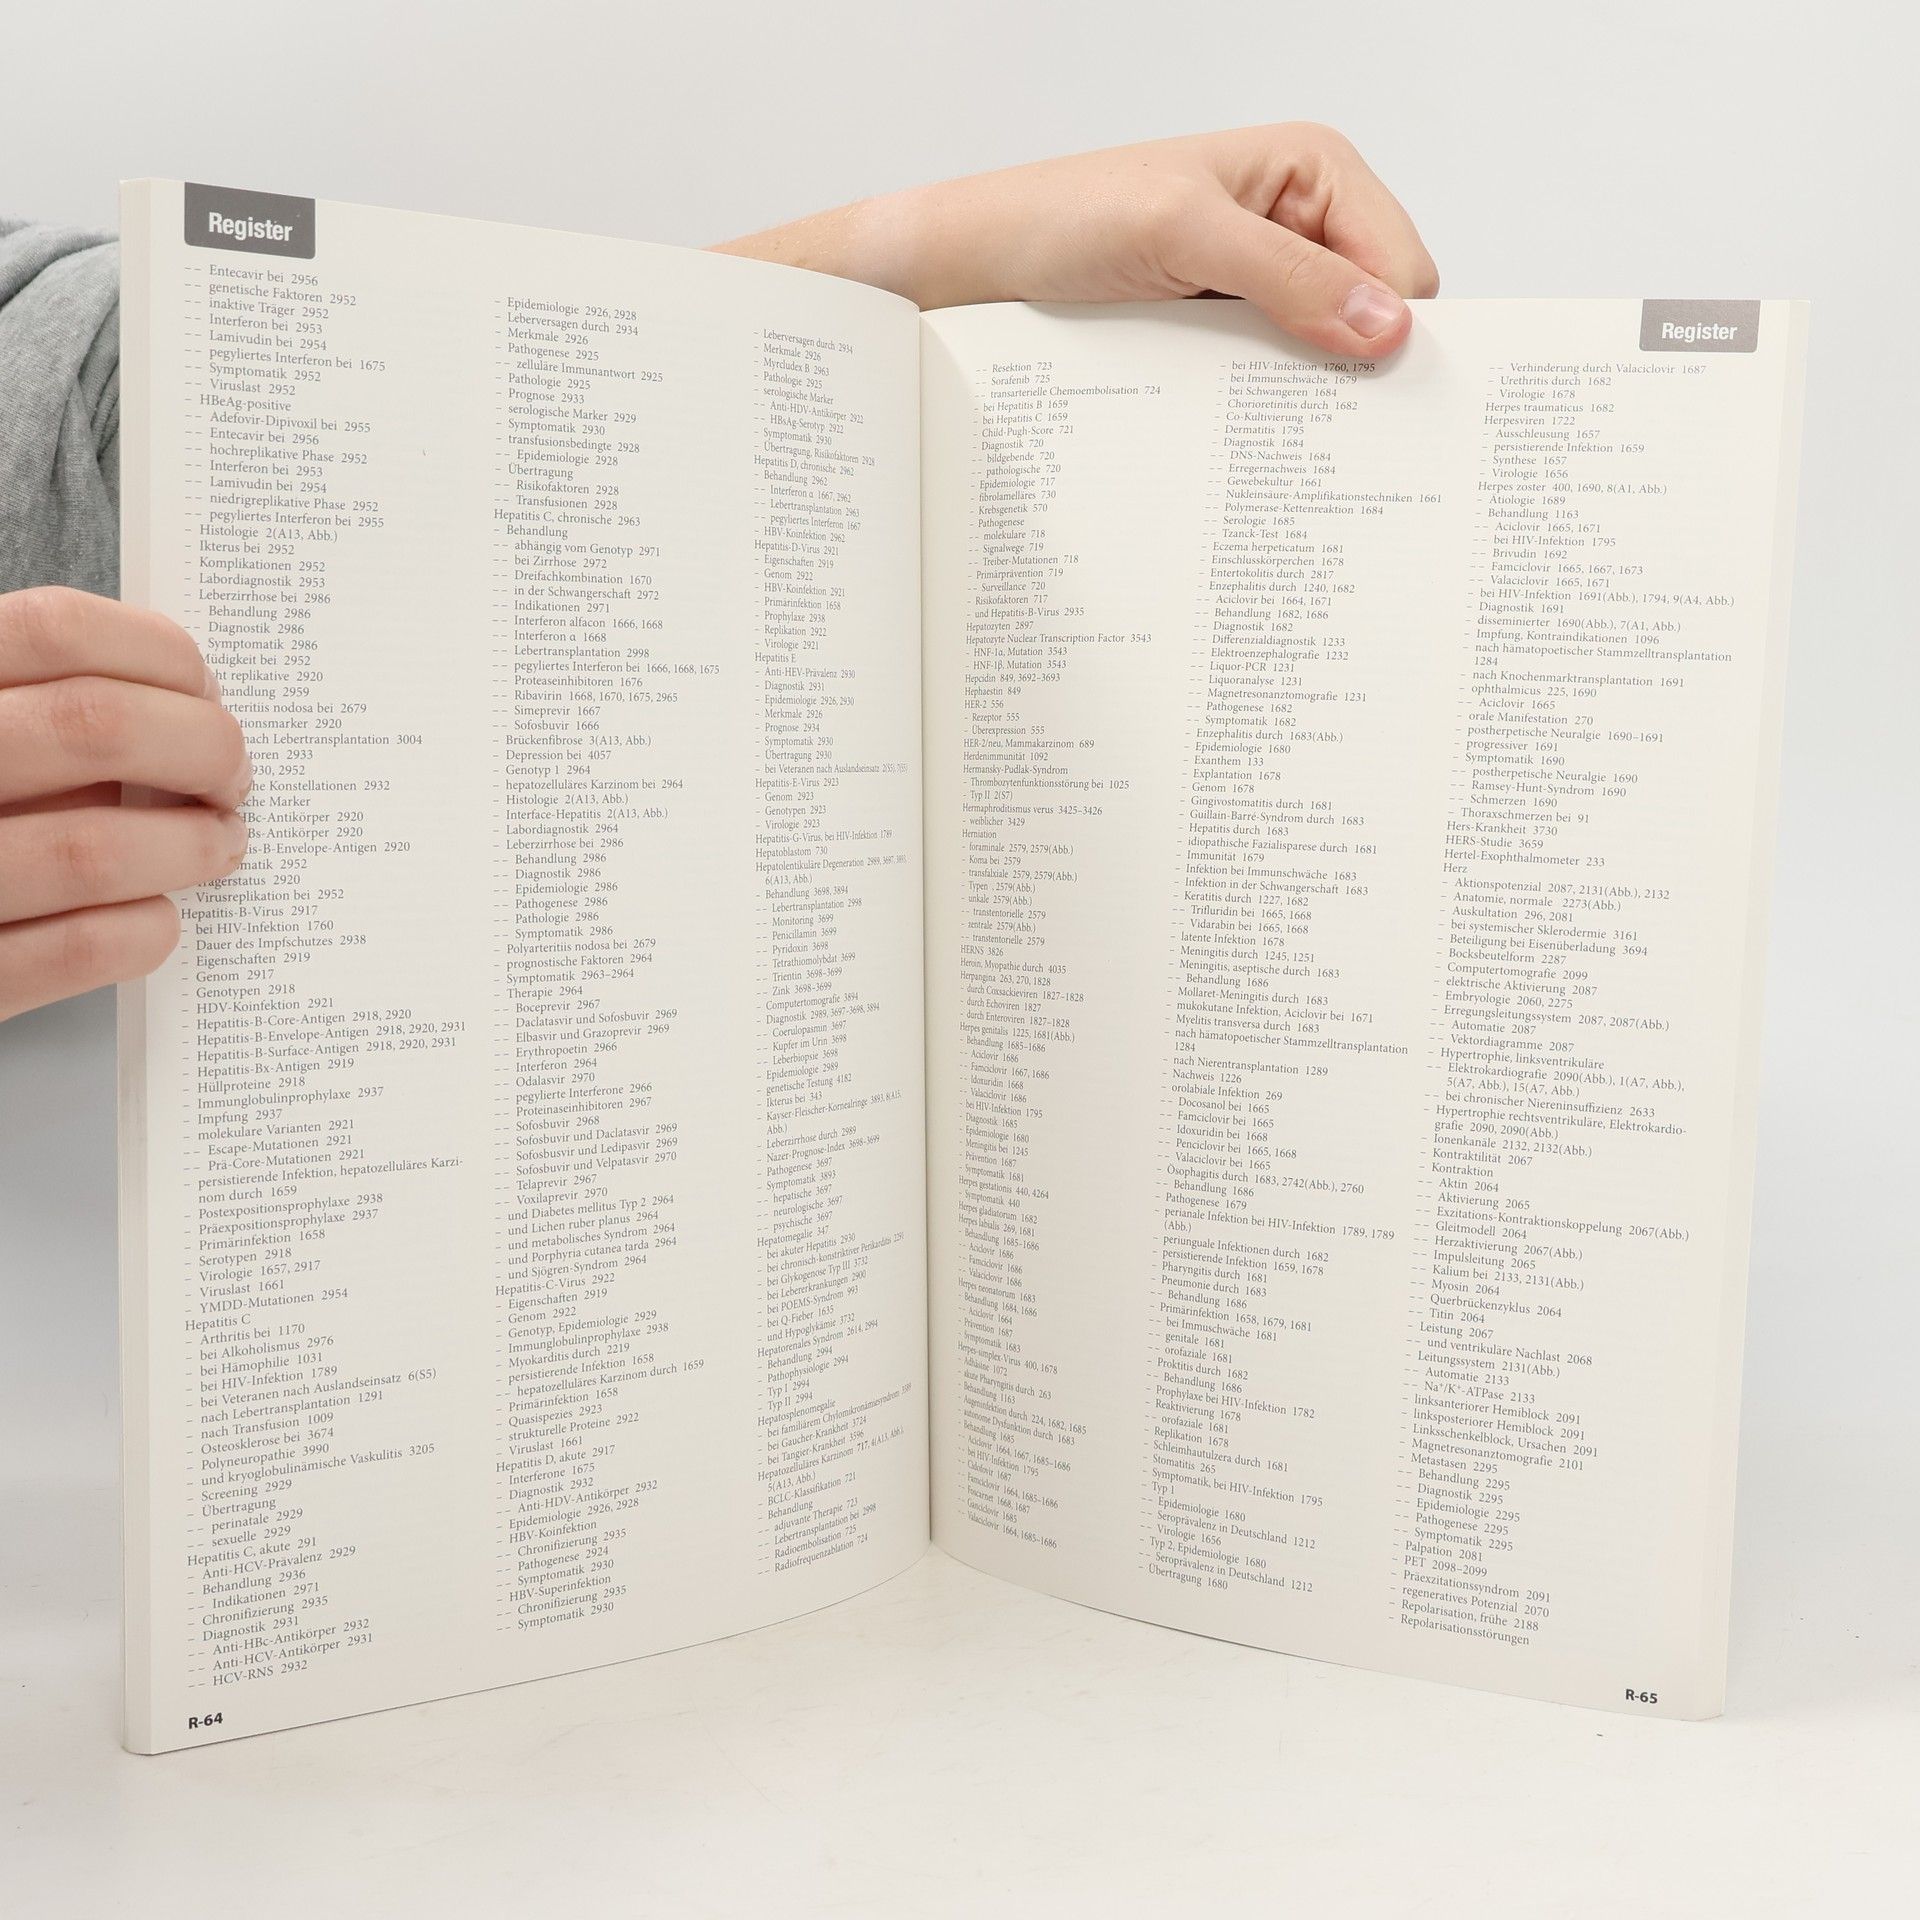 Register
-- Entecavir bei 2956
-- genetische Faktoren 2952
-- inaktive Träger 2952
-- Interferon bei 2953
-- Lamivudin bei 2954
-- pegyliertes Interferon bei 1675
-- Symptomatik 2952
-- Viruslast 2952
- HBeAg-positive
-- Adefovir-Dipivoxil bei 2955
-- Entecavir bei 2956
-- hochreplikative Phase 2952
-- Interferon bei 2953
-- Lamivudin bei 2954
-- niedrigreplikative Phase 2952
-- pegyliertes Interferon bei 2955
- Histologie 2(A13, Abb.)
- Ikterus bei 2952
- Komplikationen 2952
- Labordiagnostik 2953
- Leberzirrhose bei 2986
-- Behandlung 2986
-- Diagnostik 2986
- Symptomatik 2986
Müdigkeit bei 2952
replikative 2920
2959
nodosa bei 2679
2920
nach Lebertransplantation 3004
2933
2952
Konstellationen 2932
Marker
2920
2920
2920
2952
2920
- Virusreplikation bei 2952
Hepatitis-B-Virus 2917
- bei HIV-Infektion 1760
- Dauer des Impfschutzes 2938
- Eigenschaften 2919
- Genom 2917
- Genotypen 2918
- HDV-Koinfektion 2921
- Hepatitis-B-Core-Antigen 2918, 2920
- Hepatitis-B-Envelope-Antigen 2918, 2920, 2931
- Hepatitis-B-Surface-Antigen 2918, 2920, 2931
- Hepatitis-Bx-Antigen 2919
- Hüllproteine 2918
- Immunglobulinprophylaxe 2937
- Impfung 2937
- molekulare Varianten 2921
-- Escape-Mutationen 2921
-- Prä-Core-Mutationen 2921
- persistierende Infektion, hepatozelluläres Karzi-
nom durch 1659
- Postexpositionsprophylaxe 2938
- Präexpositionsprophylaxe 2937
- Primärinfektion 1658
- Serotypen 2918
- Virologie 1657, 2917
- Viruslast 1661
- YMDD-Mutationen 2954
Hepatitis C
- Arthritis bei 1170
- bei Alkoholismus 2976
- bei Hämophilie 1031
- bei HIV-Infektion 1789
- bei Veteranen nach Auslandseinsatz 6(S5)
- nach Lebertransplantation 1291
- nach Transfusion 1009
- Osteosklerose bei 3674
- Polyneuropathie 3990
- und kryoglobulinämische Vaskulitis 3205
- Screening 2929
- Übertragung
-- perinatale 2929
-- sexuelle 2929
Hepatitis C, akute 291
- Anti-HCV-Prävalenz 2929
- Behandlung 2936
-- Indikationen 2971
- Chronifizierung 2935
- Diagnostik 2931
-- Anti-HBc-Antikörper 2932
-- Anti-HCV-Antikörper 2931
-- HCV-RNS 2932
R-64
- Epidemiologie 2926, 2928
- Leberversagen durch 2934
- Merkmale 2926
- Pathogenese 2925
-- zelluläre Immunantwort 2925
- Pathologie 2925
- Prognose 2933
- serologische Marker 2929
- Symptomatik 2930
- transfusionsbedingte 2928
-- Epidemiologie 2928
- Übertragung
-- Risikofaktoren 2928
-- Transfusionen 2928
Hepatitis C, chronische 2963
- Behandlung
-- abhängig vom Genotyp 2971
-- bei Zirrhose 2972
-- Dreifachkombination 1670
-- in der Schwangerschaft 2972
-- Indikationen 2971
-- Interferon alfacon 1666, 1668
-- Interferon α 1668
-- Lebertransplantation 2998
-- pegyliertes Interferon bei 1666, 1668, 1675
-- Proteaseinhibitoren 1676
-- Ribavirin 1668, 1670, 1675, 2965
-- Simeprevir 1667
-- Sofosbuvir 1666
- Brückenfibrose 3(A13, Abb.)
- Depression bei 4057
- Genotyp 1 2964
- hepatozelluläres Karzinom bei 2964
- Histologie 2(A13, Abb.)
- Interface-Hepatitis 2(A13, Abb.)
- Labordiagnostik 2964
- Leberzirrhose bei 2986
-- Behandlung 2986
-- Diagnostik 2986
-- Epidemiologie 2986
-- Pathogenese 2986
-- Pathologie 2986
-- Symptomatik 2986
- Polyarteritis nodosa bei 2679
- prognostische Faktoren 2964
- Symptomatik 2963–2964
- Therapie 2964
-- Boceprevir 2967
-- Daclatasvir und Sofosbuvir 2969
-- Elbasvir und Grazoprevir 2969
-- Erythropoetin 2966
-- Interferon 2964
-- Odalasvir 2970
-- pegylierte Interferone 2966
-- Proteinaseinhibitoren 2967
-- Sofosbuvir 2968
-- Sofosbuvir und Daclatasvir 2969
-- Sofosbusvir und Ledipasvir 2969
-- Sofosbuvir und Velpatasvir 2970
-- Telaprevir 2967
-- Voxilaprevir 2970
- und Diabetes mellitus Typ 2 2964
- und Lichen ruber planus 2964
- und metabolisches Syndrom 2964
- und Porphyria cutanea tarda 2964
- und Sjögren-Syndrom 2964
Hepatitis-C-Virus 2922
- Eigenschaften 2919
- Genom 2922
- Genotyp, Epidemiologie 2929
- Immunglobulinprophylaxe 2938
- Myokarditis durch 2219
- persistierende Infektion 1658
-- hepatozelluläres Karzinom durch 1659
- Primärinfektion 1658
- Quasispezies 2923
- strukturelle Proteine 2922
- Viruslast 1661
Hepatitis D, akute 2917
- Interferone 1675
- Diagnostik 2932
-- Anti-HDV-Antikörper 2932
- Epidemiologie 2926, 2928
- HBV-Koinfektion
-- Chronifizierung 2935
-- Pathogenese 2924
-- Symptomatik 2930
- HBV-Superinfektion
-- Chronifizierung 2935
-- Symptomatik 2930
- Leberversagen durch 2934
- Merkmale 2926
- Myrcludex B 2963
- Pathologie 2925
- serologische Marker
-- Anti-HDV-Antikörper 2922
-- HBsAg-Serotyp 2922
- Symptomatik 2930
- Übertragung, Risikofaktoren 2928
Hepatitis D, chronische 2962
- Behandlung 2962
-- Interferon α 1667, 2962
-- Lebertransplantation 2963
-- pegyliertes Interferon 1667
- HBV-Koinfektion 2962
Hepatitis-D-Virus 2921
- Eigenschaften 2919
- Genom 2922
- HBV-Koinfektion 2921
- Primärinfektion 1658
- Prophylaxe 2938
- Replikation 2922
- Virologie 2921
Hepatitis E
- Anti-HEV-Prävalenz 2930
- Diagnostik 2931
- Epidemiologie 2926, 2930
- Merkmale 2926
- Prognose 2934
- Symptomatik 2930
- Übertragung 2930
- bei Veteranen nach Auslandseinsatz 2(S5), 7(S5)
Hepatitis-E-Virus 2923
- Genom 2923
- Genotypen 2923
- Virologie 2923
Hepatitis-G-Virus, bei HIV-Infektion 1789
Hepatoblastom 730
Hepatolentikuläre Degeneration 2989, 3697, 3893,
6(A13, Abb.)
- Behandlung 3698, 3894
-- Lebertransplantation 2998
-- Monitoring 3699
-- Penicillamin 3699
-- Pyridoxin 3698
-- Tetrathiomolybdat 3699
-- Trientin 3698–3699
-- Zink 3698–3699
- Computertomografie 3894
- Diagnostik 2989, 3697–3698, 3894
-- Coeruloplasmin 3697
-- Kupfer im Urin 3698
-- Leberbiopsie 3698
- Epidemiologie 2989
- genetische Testung 4182
- Ikterus bei 343
- Kayser-Fleischer-Kornealringe 3893, 8(A15,
Abb.)
- Leberzirrhose durch 2989
- Nazer-Prognose-Index 3698–3699
- Pathogenese 3697
- Symptomatik 3893
-- hepatische 3697
-- neurologische 3697
-- psychische 3697
Hepatomegalie 347
- bei akuter Hepatitis 2930
- bei chronisch-konstriktiver Perikarditis 2291
- bei Glykogenose Typ III 3732
- bei Lebererkrankungen 2900
- bei POEMS-Syndrom 993
- bei Q-Fieber 1635
- und Hypoglykämie 3732
Hepatorenales Syndrom 2614, 2994
- Behandlung 2994
- Pathophysiologie 2994
- Typ I 2994
- Typ II 2994
Hepatosplenomegalie
- bei familiärem Chylomikronämiesyndrom 3589
- bei Gaucher-Krankheit 3724
- bei Tangier-Krankheit 3596
Hepatozelluläres Karzinom 717, 4(A13, Abb.),
5(A13, Abb.)
- BCLC-Klassifikation 721
- Behandlung
-- adjuvante Therapie 723
-- Lebertransplantation bei 2998
-- Radioembolisation 725
-- Radiofrequenzablation 724
Register
-- Resektion 723
-- Sorafenib 725
-- transarterielle Chemoembolisation 724
- bei Hepatitis B 1659
- bei Hepatitis C 1659
- Child-Pugh-Score 721
- Diagnostik 720
-- bildgebende 720
-- pathologische 720
- Epidemiologie 717
- fibrolamelläres 730
- Krebsgenetik 570
- Pathogenese
-- molekulare 718
-- Signalwege 719
-- Treiber-Mutationen 718
- Primärprävention 719
-- Surveillance 720
- Risikofaktoren 717
- und Hepatitis-B-Virus 2935
Hepatozyten 2897
Hepatozyte Nuclear Transcription Factor 3543
- HNF-1α, Mutation 3543
- HNF-1β, Mutation 3543
Hepcidin 849, 3692–3693
Hephaestin 849
HER-2 556
- Rezeptor 555
- Überexpression 555
HER-2/neu, Mammakarzinom 689
Herdenimmunität 1092
Hermansky-Pudlak-Syndrom
- Thrombozytenfunktionsstörung bei 1025
- Typ II 2(S7)
Hermaphroditismus verus 3425–3426
- weiblicher 3429
Herniation
- foraminale 2579, 2579(Abb.)
- Koma bei 2579
- transfalxiale 2579, 2579(Abb.)
- Typen . 2579(Abb.)
- unkale 2579(Abb.)
-- transtentorielle 2579
- zentrale 2579(Abb.)
-- transtentorielle 2579
HERNS 3826
Heroin, Myopathie durch 4035
Herpangina 263, 270, 1828
- durch Coxsackieviren 1827–1828
- durch Echoviren 1827
- durch Enteroviren 1827–1828
Herpes genitalis 1225, 1681(Abb.)
- Behandlung 1685–1686
-- Aciclovir 1686
-- Famciclovir 1667, 1686
-- Idoxuridin 1668
-- Valaciclovir 1686
- bei HIV-Infektion 1795
- Diagnostik 1685
- Epidemiologie 1680
- Meningitis bei 1245
- Prävention 1687
- Symptomatik 1681
Herpes gestationis 440, 4264
- Symptomatik 440
Herpes gladiatorum 1682
Herpes labialis 269, 1681
- Behandlung 1685–1686
-- Aciclovir 1686
-- Famciclovir 1686
-- Valaciclovir 1686
Herpes neonatorum 1683
- Behandlung 1684, 1686
-- Aciclovir 1664
- Prävention 1687
- Symptomatik 1683
Herpes-simplex-Virus 400, 1678
- Adhäsine 1072
- akute Pharyngitis durch 263
-- Behandlung 1163
- Augeninfektion durch 224, 1682, 1685
- autonome Dysfunktion durch 1683
- Behandlung 1685
-- Aciclovir 1664, 1667, 1685–1686
-- bei HIV-Infektion 1795
-- Cidofovir 1687
-- Famciclovir 1664, 1685–1686
-- Foscarnet 1668, 1687
-- Ganciclovir 1685
-- Valaciclovir 1664, 1685–1686
- bei HIV-Infektion 1760, 1795
- bei Immunschwäche 1679
- bei Schwangeren 1684
- Chorioretinitis durch 1682
- Co-Kultivierung 1678
- Dermatitis 1795
- Diagnostik 1684
-- DNS-Nachweis 1684
-- Erregernachweis 1684
-- Gewebekultur 1661
-- Nukleinsäure-Amplifikationstechniken 1661
-- Polymerse-Kettenreaktion 1684
-- Serologie 1685
-- Tzanck-Test 1684
- Eczema herpeticatum 1681
- Einschlusskörperchen 1678
- Entertokolitis durch 2817
- Enzephalitis durch 1240, 1682
-- Aciclovir bei 1664, 1671
-- Behandlung 1682, 1686
-- Diagnostik 1682
-- Differenzialdiagnostik 1233
-- Elektroenzephalografie 1232
-- Liquor-PCR 1231
-- Liquoranalyse 1231
-- Magnetresonanztomografie 1231
-- Pathogenese 1682
-- Symptomatik 1682
- Enzephalitis durch 1683(Abb.)
- Epidemiologie 1680
- Exanthem 133
- Explantation 1678
- Genom 1678
- Gingivostomatitis durch 1681
- Guillain-Barré-Syndrom durch 1683
- Hepatitis durch 1683
- idiopathische Fazialisparese durch 1681
- Immunität 1679
- Infektion bei Immunschwäche 1683
- Infektion in der Schwangerschaft 1683
- Keratitis durch 1227, 1682
-- Trifluridin bei 1665, 1668
-- Vidarabin bei 1665, 1668
- latente Infektion 1678
- Meningitis durch 1245, 1251
- Meningitis, aseptische durch 1683
-- Behandlung 1686
- Mollaret-Meningitis durch 1683
- mukokutane Infektion, Aciclovir bei 1671
- Myelitis transversa durch 1683
- nach hämatopoetischer Stammzelltransplantation
1284
- nach Nierentransplantation 1289
- Nachweis 1226
- orolabiale Infektion 269
-- Docosanol bei 1665
-- Famciclovir bei 1665
-- Idoxuridin bei 1668
-- Penciclovir bei 1665, 1668
-- Valaciclovir bei 1665
- Ösophagitis durch 1683, 2742(Abb.), 2760
-- Behandlung 1686
- Pathogenese 1679
- perianale Infektion bei HIV-Infektion 1789, 1789
(Abb.)
- periunguale Infektionen durch 1682
- persistierende Infektion 1659, 1678
- Pharyngitis durch 1681
- Pneumonie durch 1683
-- Behandlung 1686
- Primärinfektion 1658, 1679, 1681
-- bei Immuschwäche 1681
-- genitale 1681
-- orofaziale 1681
- Proktitis durch 1682
-- Behandlung 1686
- Prophylaxe bei HIV-Infektion 1782
- Reaktivierung 1678
-- orofaziale 1681
- Replikation 1678
- Schleimhautulzera durch 1681
- Stomatitis 265
- Symptomatik, bei HIV-Infektion 1795
- Typ 1
-- Epidemiologie 1680
-- Seroprävalenz in Deutschland 1212
-- Virologie 1656
- Typ 2, Epidemiologie 1680
-- Seroprävalenz in Deutschland 1212
- Übertragung 1680
-- Verhinderung durch Valaciclovir 1687
- Urethritis durch 1682
- Virologie 1678
Herpes traumaticus 1682
Herpesviren 1722
- Ausschleusung 1657
- persistierende Infektion 1659
- Synthese 1657
- Virologie 1656
Herpes zoster 400, 1690, 8(A1, Abb.)
- Ätiologie 1689
- Behandlung 1163
-- Aciclovir 1665, 1671
-- bei HIV-Infektion 1795
-- Brivudin 1692
-- Famciclovir 1665, 1667, 1673
-- Valaciclovir 1665, 1671
- bei HIV-Infektion 1691(Abb.), 1794, 9(A4, Abb.)
- Diagnostik 1691
- disseminierter 1690(Abb.), 7(A1, Abb.)
- Impfung, Kontraindikationen 1096
- nach hämatopoetischer Stammzelltransplantation
1284
- nach Knochenmarktransplantation 1691
- ophthalmicus 225, 1690
-- Aciclovir 1665
- orale Manifestation 270
- postherpetische Neuralgie 1690–1691
- progressiver 1691
- Symptomatik 1690
-- postherpetische Neuralgie 1690
-- Ramsey-Hunt-Syndrom 1690
-- Schmerzen 1690
- Thoraxschmerzen bei 91
Hers-Krankheit 3730
HERS-Studie 3659
Hertel-Exophthalmometer 233
Herz
- Aktionspotenzial 2087, 2131(Abb.), 2132
- Anatomie, normale 2273(Abb.)
- Auskultation 296, 2081
- bei systemischer Sklerodermie 3161
- Beteiligung bei Eisenüberladung 3694
- Bocksbeutelform 2287
- Computertomografie 2099
- elektrische Aktivierung 2087
- Embryologie 2060, 2275
- Erregungsleitungssystem 2087, 2087(Abb.)
-- Automatie 2087
-- Vektordiagramme 2087
- Hypertrophie, linksventrikuläre
-- Elektrokardiografie 2090(Abb.), 1(A7, Abb.),
5(A7, Abb.), 15(A7, Abb.)
-- bei chronischer Niereninsuffizienz 2633
- Hypertrophie rechtsventrikuläre, Elektrokardio-
grafie 2090, 2090(Abb.)
- Ionenkanäle 2132, 2132(Abb.)
- Kontraktilität 2067
- Kontraktion
-- Aktin 2064
-- Aktivierung 2065
-- Exzitations-Kontraktionskoppelung 2067(Abb.)
-- Gleitmodell 2064
-- Herzaktivierung 2067(Abb.)
-- Impulsleitung 2065
-- Kalium bei 2133, 2131(Abb.)
-- Myosin 2064
-- Querbrückenzyklus 2064
-- Titin 2064
- Leistung 2067
-- und ventrikuläre Nachlast 2068
- Leitungssystem 2131(Abb.)
-- Automatie 2133
-- Na⁺/K⁺-ATPase 2133
- linksanteriorer Hemiblock 2091
- linksposteriorer Hemiblock 2091
- Linksschenkelblock, Ursachen 2091
- Magnetresonanztomografie 2101
- Metastasen 2295
-- Behandlung 2295
-- Diagnostik 2295
-- Epidemiologie 2295
-- Pathogenese 2295
-- Symptomatik 2295
- Palpation 2081
- PET 2098–2099
- Präexzitationssyndrom 2091
- regeneratives Potenzial 2070
- Repolarisation, frühe 2188
- Repolarisationsstörungen
R-65